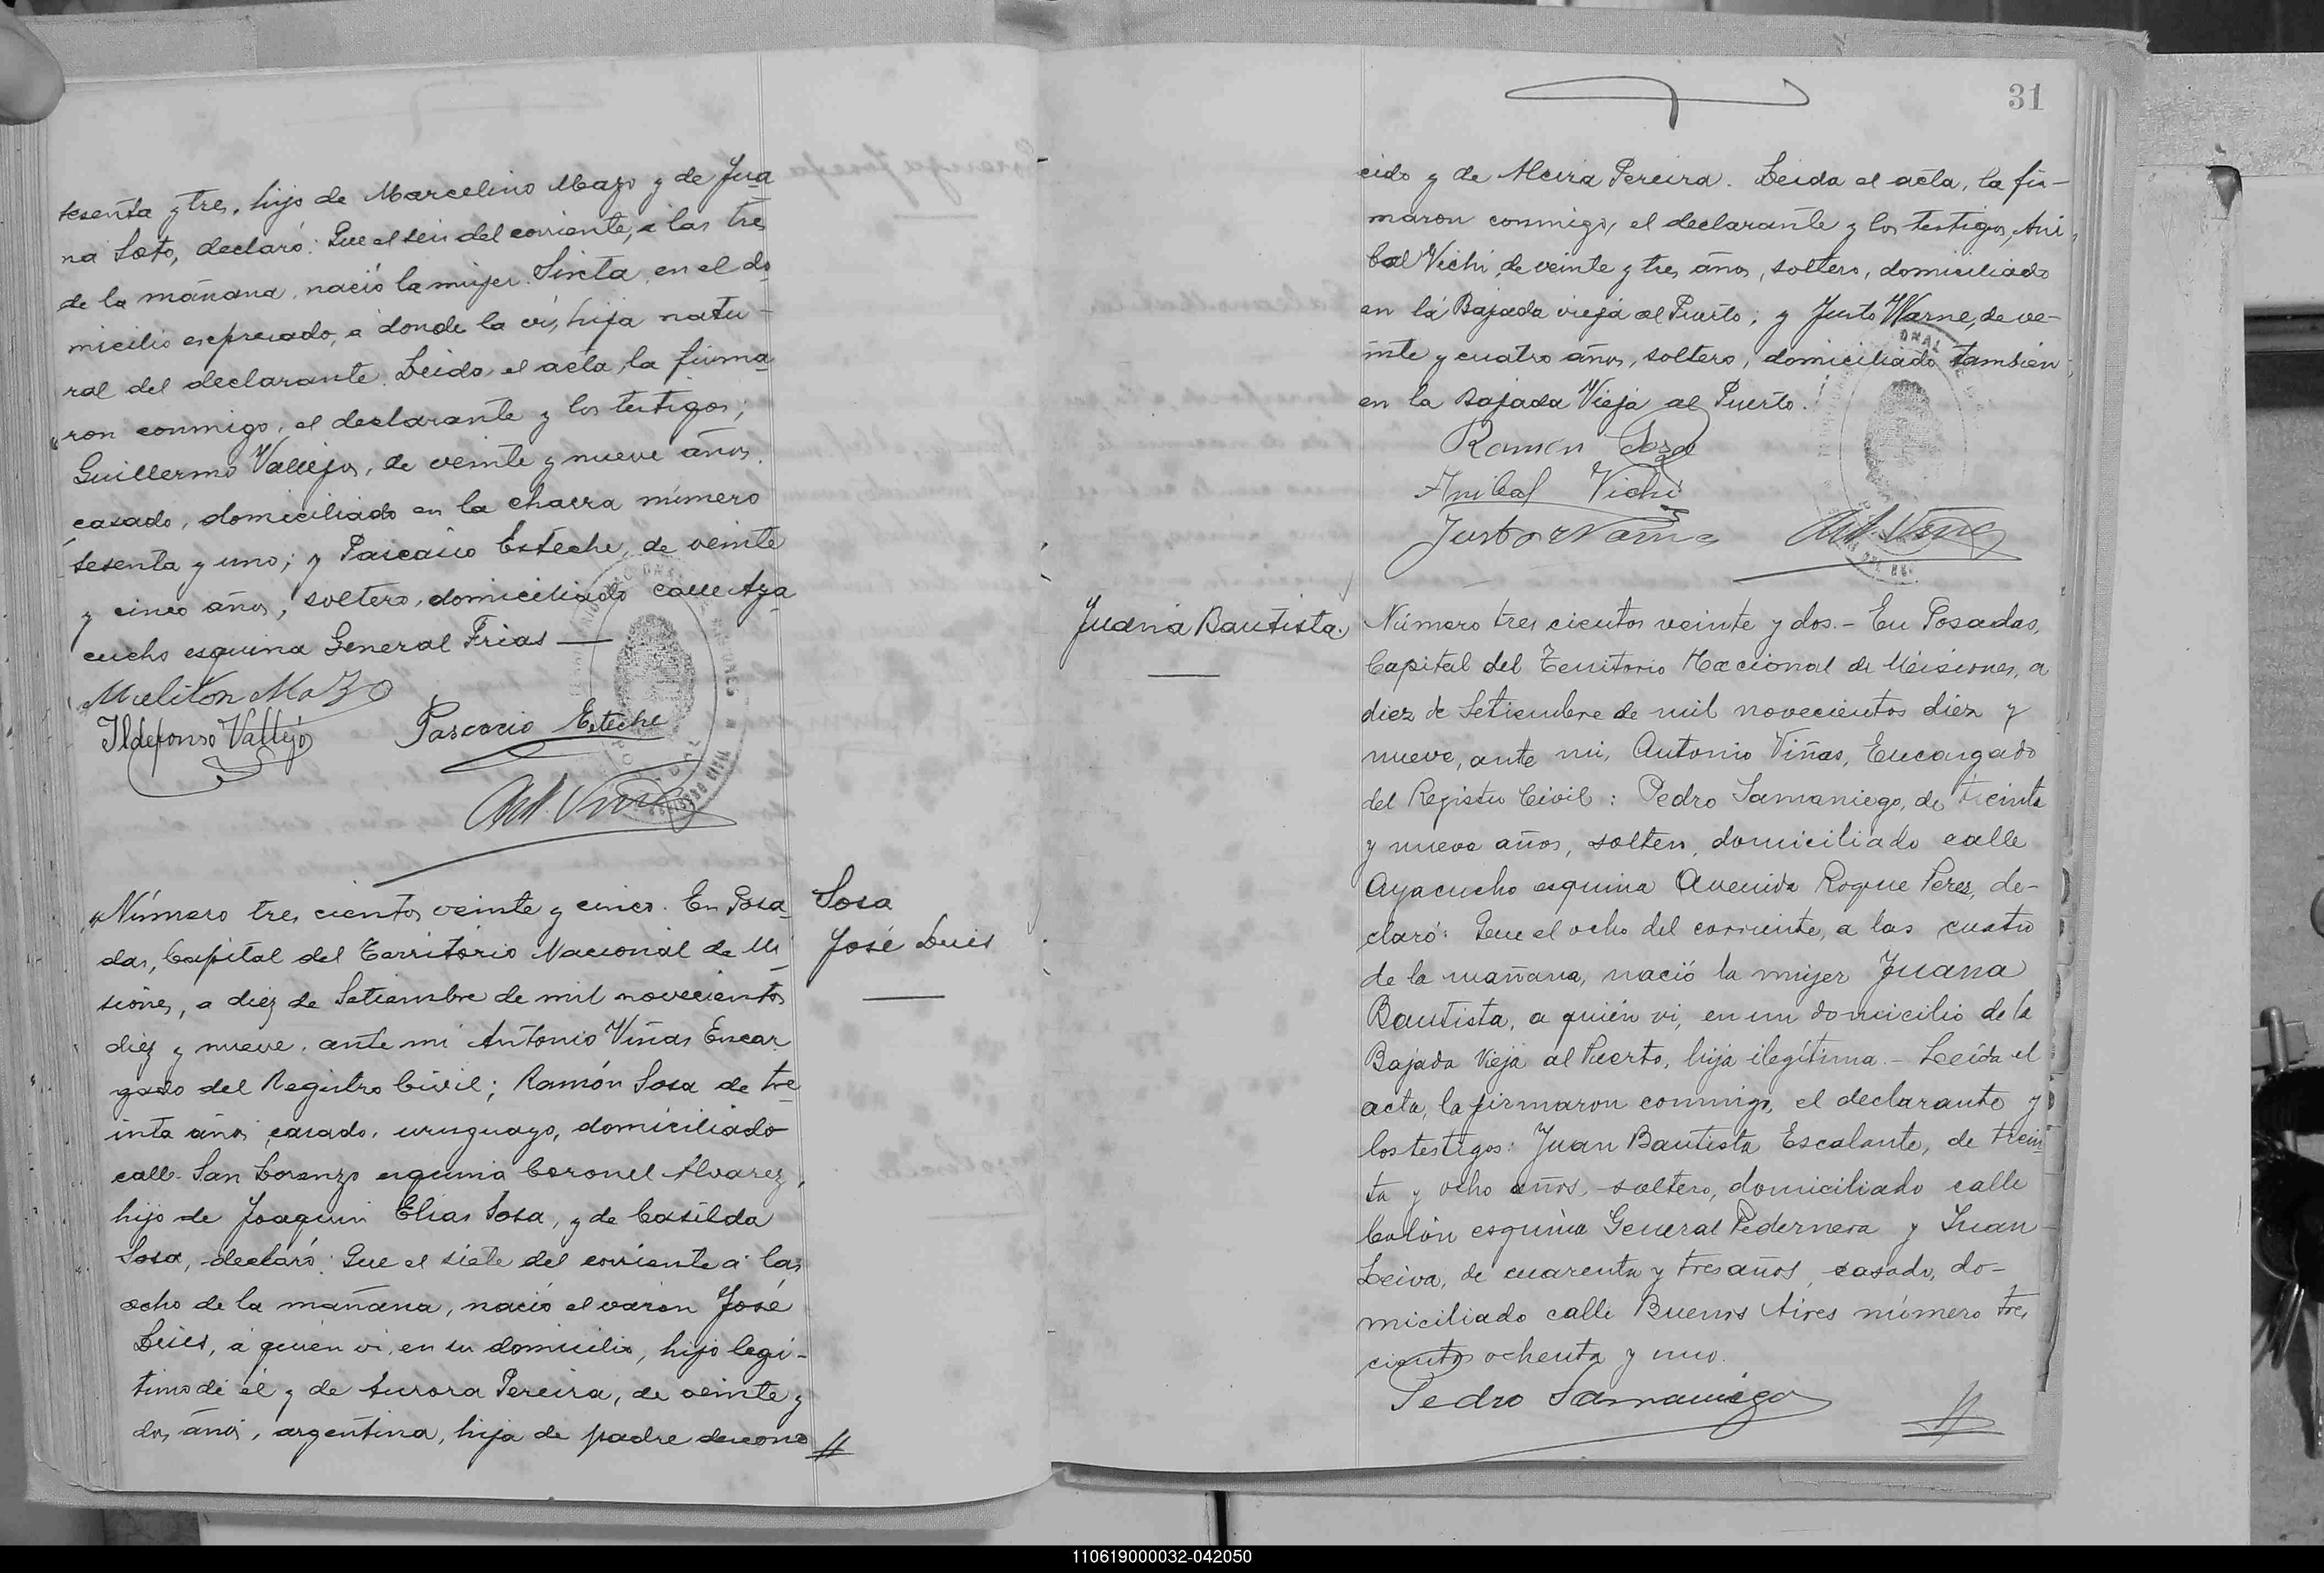 sesenta y tres, hijo de Marcelino Mazo y de Jua
na Soto, declaró: Que el seis del corriente, a las tres
de la mañana, nació la mujer Sixta, en el do
micilio expresado, a donde la vi, hija natu-
ral del declarante. Leida el acta, la firma
ron conmigo, el declarante y los testigos;
Guillermo Vallejos, de veinte y nueve años,
casado, domiciliado en la chacra número
sesenta y uno; y Pascasio Esteche, de veinte
y cinco años, soltero, domiciliado calle Aya
cucho esquina General Frias
Meliton Mazo
Ildefonso Vallejo
Pascacio Esteche
Ant. Viñas
Número tres cientos veinte y cinco. En Posa
das, Capital del Territorio Nacional de Mi
siones, a diez de Setiembre de mil novecientos
diez y nueve, ante mi Antonio Viñas Encar
gado del Registro Civil; Ramón Sosa de tre
inta años casado, uruguayo, domiciliado
calle San Lorenzo esquina Coronel Alvarez,
hijo de Joaquin Elias Sosa, y de Casilda
Sosa, declaró: Que el siete del corriente a las
ocho de la mañana, nació el varon José
Luis, a quien vi, en su domicilio, hijo legi-
timo de él y de Aurora Pereira, de veinte y
dos años, argentina, hija de padre descono
Sosa
José Luis
31
cido y de Pereira. Leida el acta, la fir-
maron conmigo, el declarante y los testigos, Ani
bal Vichi, de veinte y tres años, soltero, domiciliado
en la Bajada vieja al Puerto; y Justo Warne, de ve-
inte y cuatro años, soltero, domiciliado tambien
en la Bajada Vieja al Puerto.
Ramon Soza
Anibal Vichi
Justo Warne
Ant. Viñas
Juana Bautista.
Número tres cientos veinte y dos.- En Posadas,
Capital del Territorio Nacional de Misiones, a
diez de Setiembre de mil novecientos diez y
nueve, ante mi, Antonio Viñas, Encargado
del Registro Civil: Pedro Samaniego, de treinta
y nueve años, soltero, domiciliado calle
Ayacucho esquina Avenida Roque Perez, de-
claró: Que el ocho del corriente, a las cuatro
de la mañana, nació la mujer Juana
Bautista, a quién vi, en un domicilio de la
Bajada Vieja al Puerto, hija ilegítima.- Leída el
acta, la firmaron conmigo, el declarante y
los testigos: Juan Bautista Escalante, de trein
ta y ocho años, soltero, domiciliado calle
Colón esquina General Pedernera y Juan
Leiva, de cuarenta y tres años, casado, do-
miciliado calle Buenos Aires número tres
cientos ochenta y uno.
Pedro Samaniego
110619000032-042050